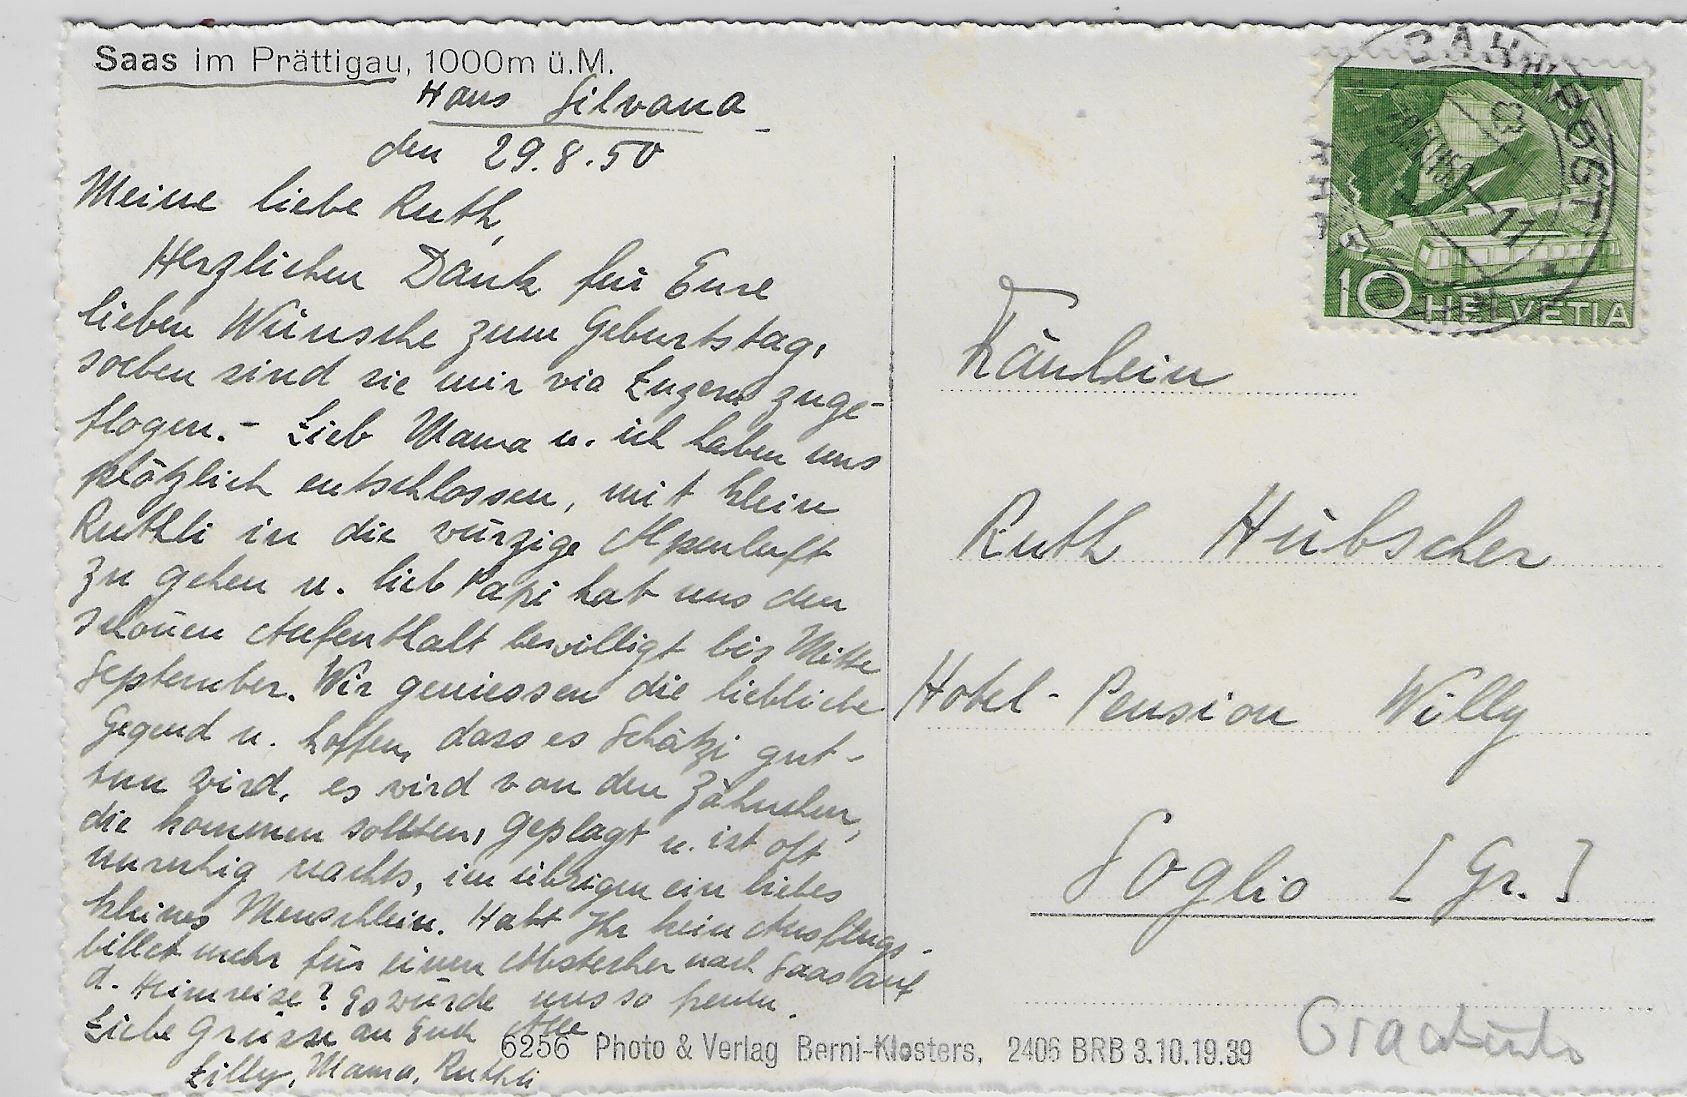 Saas im Prättigau, 1000m ü.M.
Haus Silvana
den 29.8.50
Meine liebe Ruth,
Herzlichen Dank für Eure
lieben Wünsche zum Geburtstag,
soeben sind sie mir via Luzern zuge-
flogen.- Lieb Mama u. ich haben uns
plötzlich entschlossen, mit klein
Ruthli in die würzige Alpenluft
zu gehen u. lieb Papi hat uns den
schönen Aufenthalt bewilligt bis Mitte
September. Wir geniessen die liebliche
Gegend u. hoffen, dass es Schätzi gut-
tun wird, es wird von den Zähnchen,
die kommen sollten, geplagt u. ist oft
unruhig nachts, im übrigen ein liebes
kleines Menschlein. Habt Ihr kein Ausflugs-
billet mehr für einen Abstecher nach Saas auf
d. Heimreise? Es würde uns so freuen.
Liebe Grüsse an Euch Alle
Lilly, Mama, Ruthli
6256 Photo & Verlag Berni-Klosters, 2406 BRB 3.10.19.39
BAHNPOST
10 HELVETIA
Fräulein
Ruth Hübscher
Hotel-Pension Willy
Soglio [Gr.]